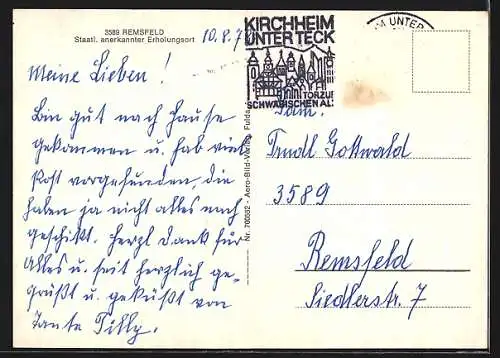 3589 REMSFELD
Staatl. anerkannter Erholungsort
10.8.7
KIRCHHEIM
UNTER TECK
TOR ZUR
SCHWÄBISCHEN AL
M UNTER
Meine Lieben!
Bin gut nach Hause
gekommen u. hab viel
Post vorgefunden, die
haben ja nicht alles nach
geschikt. Herzl Dank für
Alles u. seit herzlich ge-
grüßt u. geküßt von
Tante Tilly.
Nr. 700032 - Aero-Bild-Verlag, Fulda
Fam.
Trudl Gottwald
3589
Remsfeld
Siedlerstr. 7